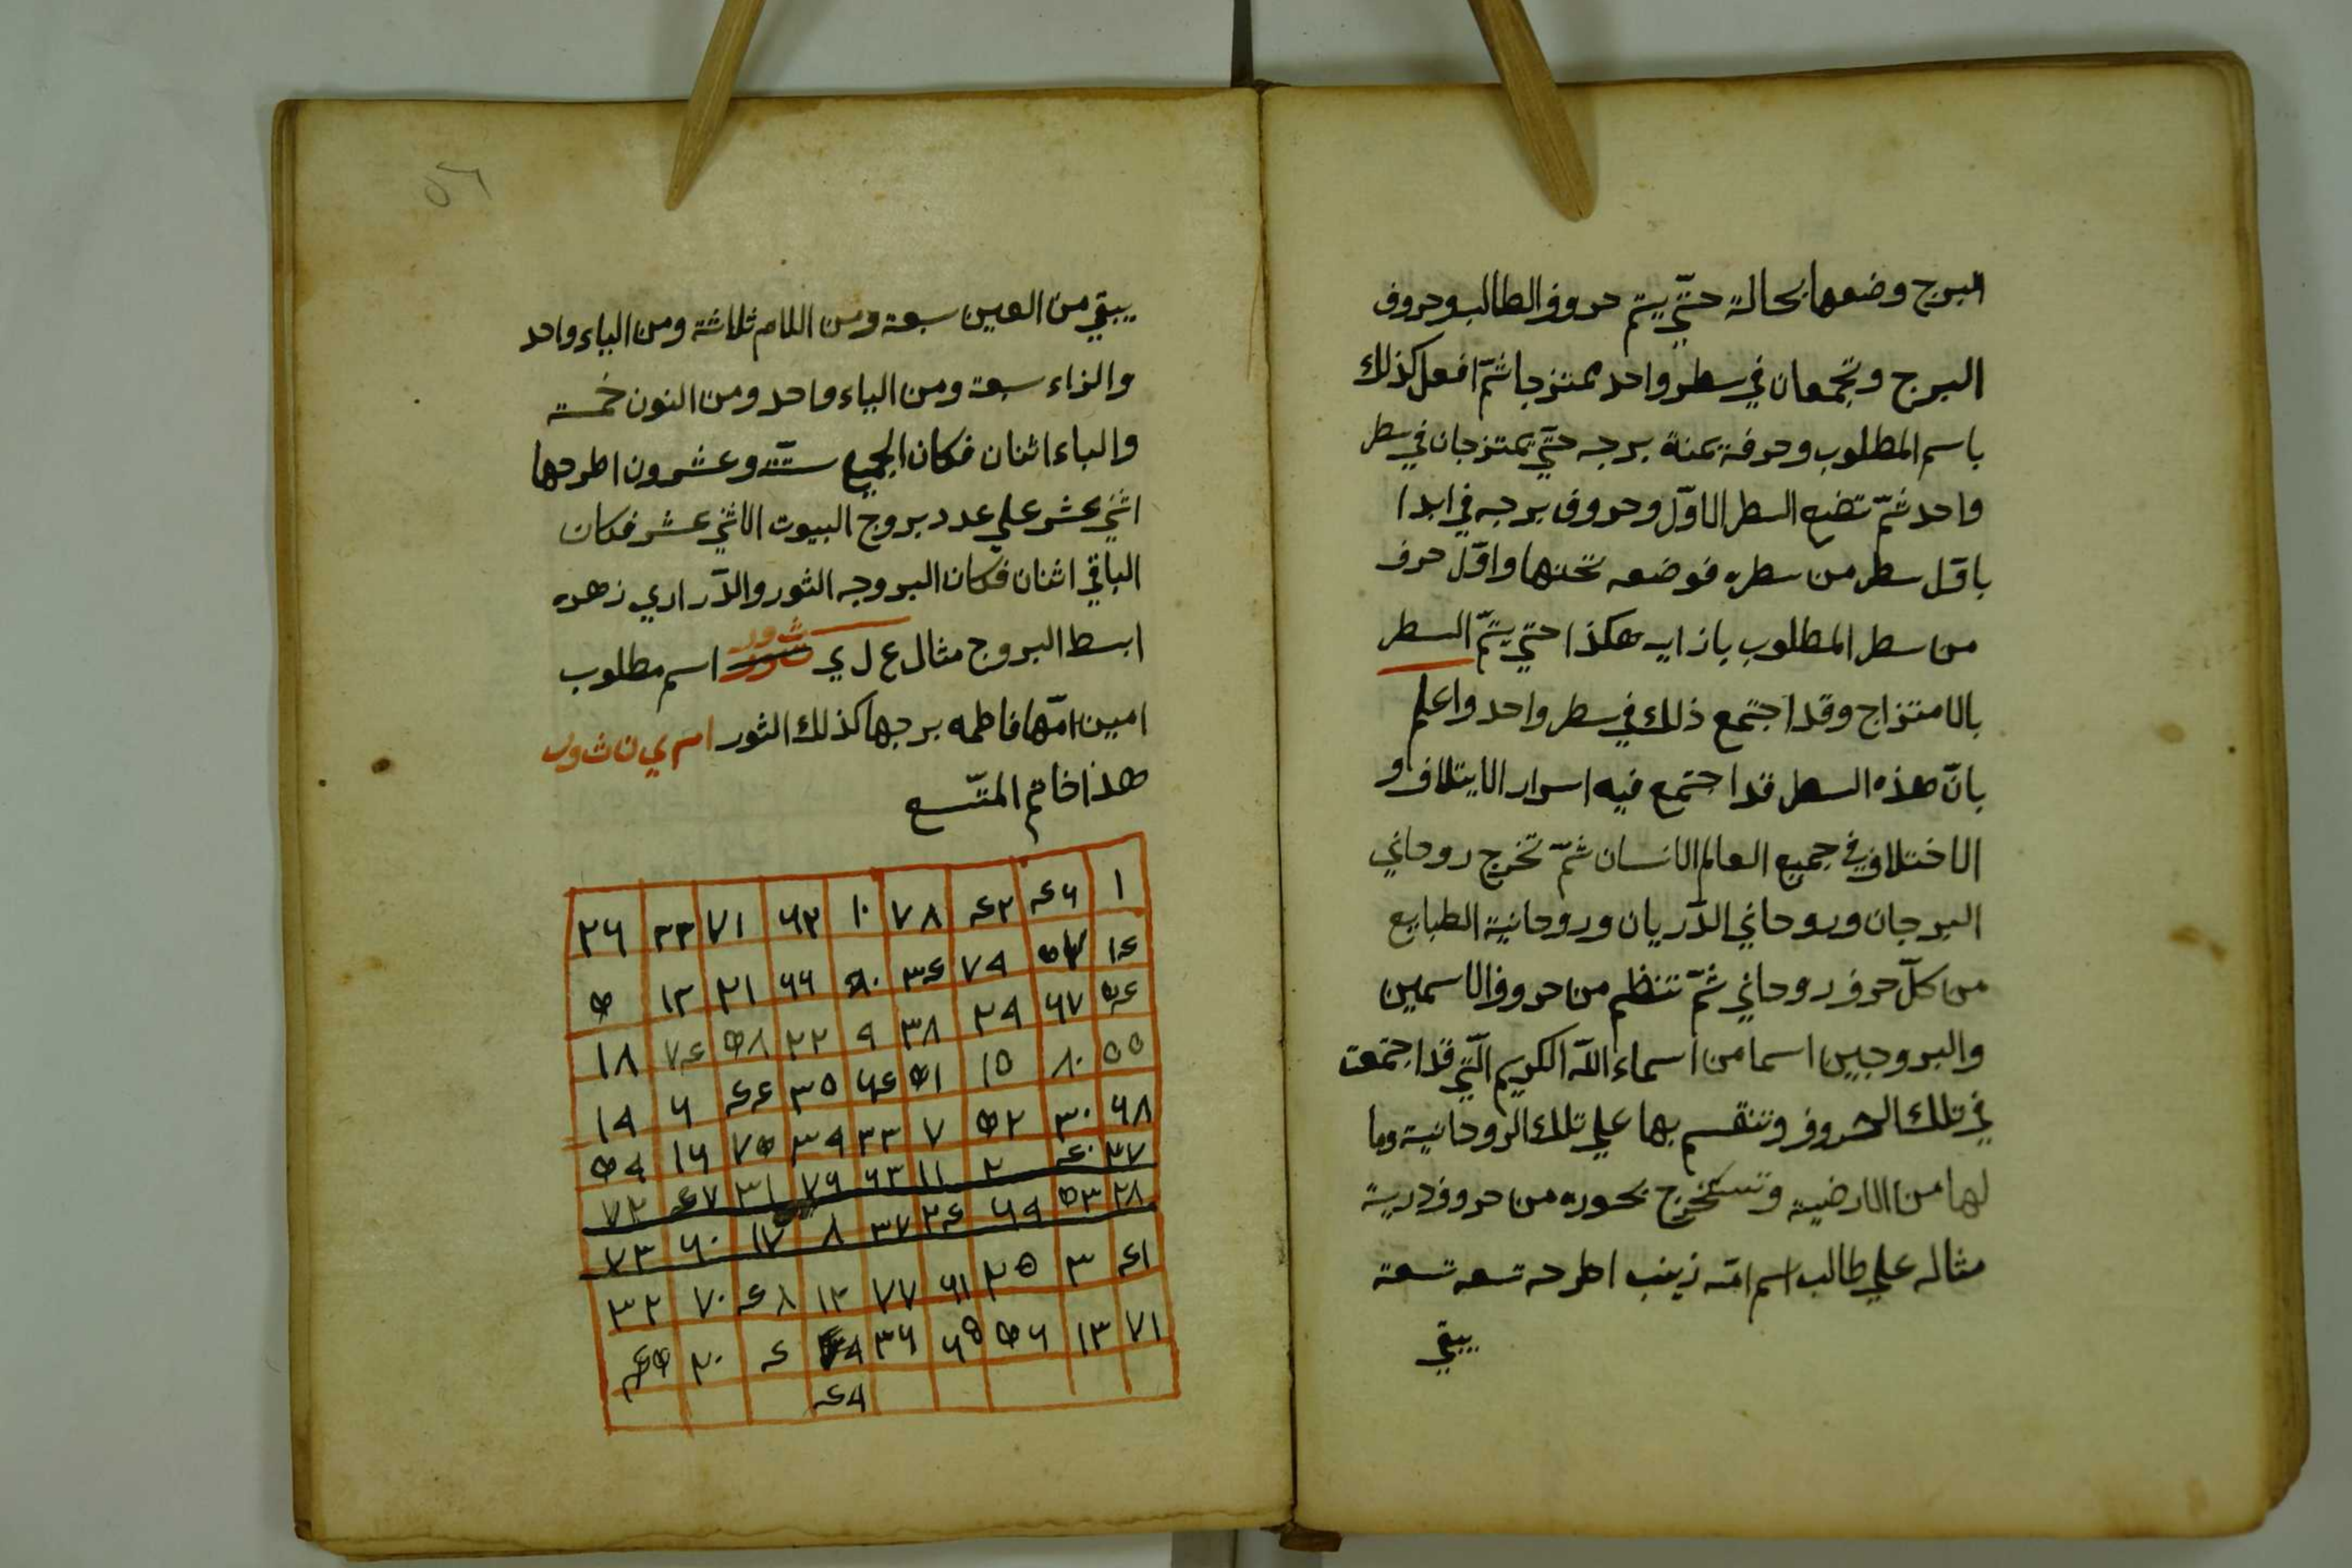 البرج وضعها بحالة حتّي يتم حروف الطالب وحروف
البرج وتجمعان في سطر واحد ممتزجا ثمّ افعل كذلك
باسم المطلوب وحرفة يمنة برجه حتّي يمتزجان في سطر
واحد ثمّ تضع السطر الاوّل وحروف برجه في ابدا
باوّل سطر من سطره فوضعه تحتها واوّل حرف
من سطر المطلوب بازايه هكذا حتي يتمّ السطر
بالامتزاج وقد اجتمع ذلك في سطر واحد واعلم
بانّ هذه السطر قد اجتمع فيه اسرار الايتلاف و
الاختلاف في جميع العالم الانسان ثمّ تخرج روحاني
البرجان وروحاني الدّريان وروحانية الطبايع
من كلّ حرف روحاني ثمّ تنظم من حروف الاسمين
والبروجين اسما من اسماء الله الكريم الّتي قد اجتمعت
في تلك الحروف وتنقسم بها علي تلك الروحانية وما
لها من الارضية وتستخرج بخوره من حروف درية
مثاله علي طالب اسم امّه زينب اطرحه تسعه تسعة
يبقي
٥٦
يبقي من العين سبعة ومن اللام ثلاثة ومن الياء واحد
والزاء سبعة ومن الياء واحد ومن النون خمسة
والباء اثنان فكان الجميع ستّة وعشرون اطرحها
اثني عشر علي عدد بروج البيوت الاثني عشر فكان
الباقي اثنان فكان البروجه الثور والدّراري زهره
ابسط البروج مثال ع ل ي ث ور اسم مطلوب
امين امّها فاطمه برجها كذلك الثور ا م ي ن ث ور
هذا خاتم المتّسع
١ ٤٦ ٤٢ ٧٨ ١٠ ٦٢ ٧١ ٣٣ ٢٦
١٤ ٧٩ ٣٤ ٦٦ ٢١ ١٢ ٥
٥٤ ٦٧ ٢٩ ٣٨ ٩ ٢٢ ٥٨ ٧٤ ١٨
٥٥ ٨٠ ١٥ ٥١ ٦٤ ٣٥ ٤٤ ٦ ١٩
٦٨ ٣٠ ٥٢ ٧ ٣٣ ٣٩ ٧٥ ١٦ ٥٩
٢٧ ٤٠ ٢ ١١ ٦٣ ٧٦ ٣١ ٤٧ ٧٢
٢٨ ٥٣ ٦٩ ٢٤ ٣٧ ٨ ١٧ ٦٠ ٧٣
٤١ ٣ ٢٥ ٦١ ٧٧ ١٢ ٤٨ ٧٠ ٣٢
٧١ ١٣ ٥٦ ٦٥ ٣٦ ٤ ٢٠
٤٩